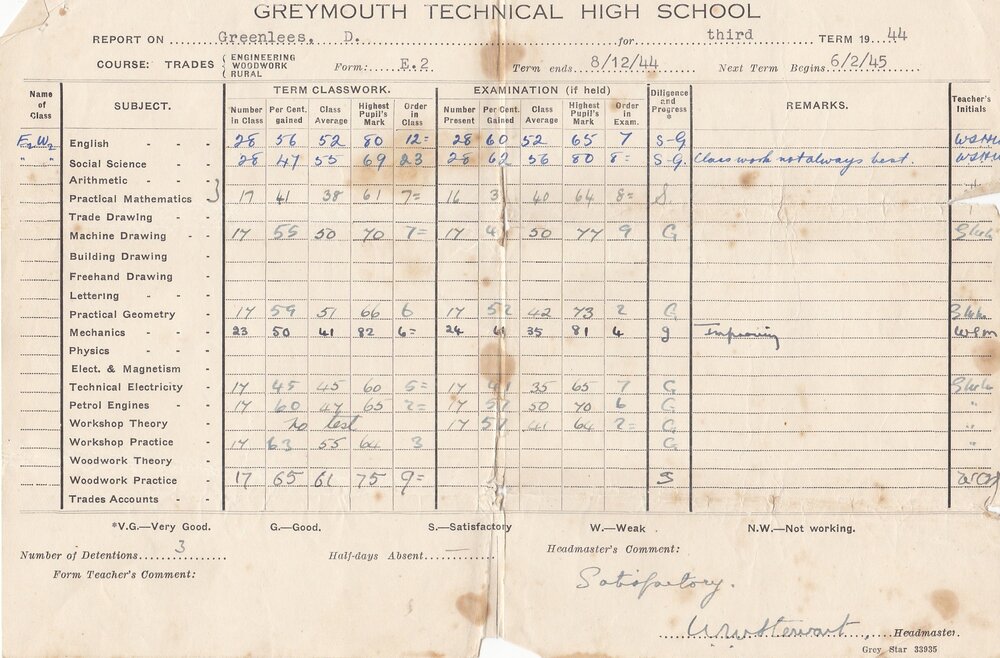 GREYMOUTH TECHNICAL HIGH SCHOOL
REPORT ON Greenlees, D. for third TERM 1944
COURSE: TRADES { ENGINEERING WOODWORK RURAL Form: E.2 Term ends 8/12/44 Next Term Begins 6/2/45
Name of Class SUBJECT. TERM CLASSWORK. EXAMINATION (if held) Diligence and Progress * REMARKS. Teacher's Initials
Number in Class Per Cent. gained Class Average Highest Pupil's Mark Order in Class Number Present Per Cent. Gained Class Average Highest Pupil's Mark Order in Exam.
E2W2 English - - - 28 56 52 80 12= 28 60 52 65 7 S-G
" " Social Science - - - 28 47 55 69 23 28 62 56 80 8= S-G Class work not always best.
Arithmetic - - -
Practical Mathematics } 17 41 38 61 7= 16 40 64 8= S
Trade Drawing - -
Machine Drawing - - 17 55 50 70 7= 17 50 77 9 G
Building Drawing -
Freehand Drawing -
Lettering - - -
Practical Geometry - 17 59 51 66 6 17 52 42 73 2 G
Mechanics - - - 23 50 41 82 6= 24 61 35 81 4 g Improving
Physics - - -
Elect. & Magnetism -
Technical Electricity - 17 45 45 60 5= 17 41 35 65 7 G
Petrol Engines - - 17 60 47 65 2= 17 57 50 70 6 G "
Workshop Theory - no test 17 57 41 64 2= G "
Workshop Practice - 17 63 55 64 3 G "
Woodwork Theory -
Woodwork Practice - 17 65 61 75 9= S
Trades Accounts - -
*V.G.—Very Good. G.—Good. S.—Satisfactory W.—Weak . N.W.—Not working.
Number of Detentions 3 Half-days Absent — Headmaster's Comment:
Form Teacher's Comment:
Satisfactory.
Headmaster.
Grey Star 33935